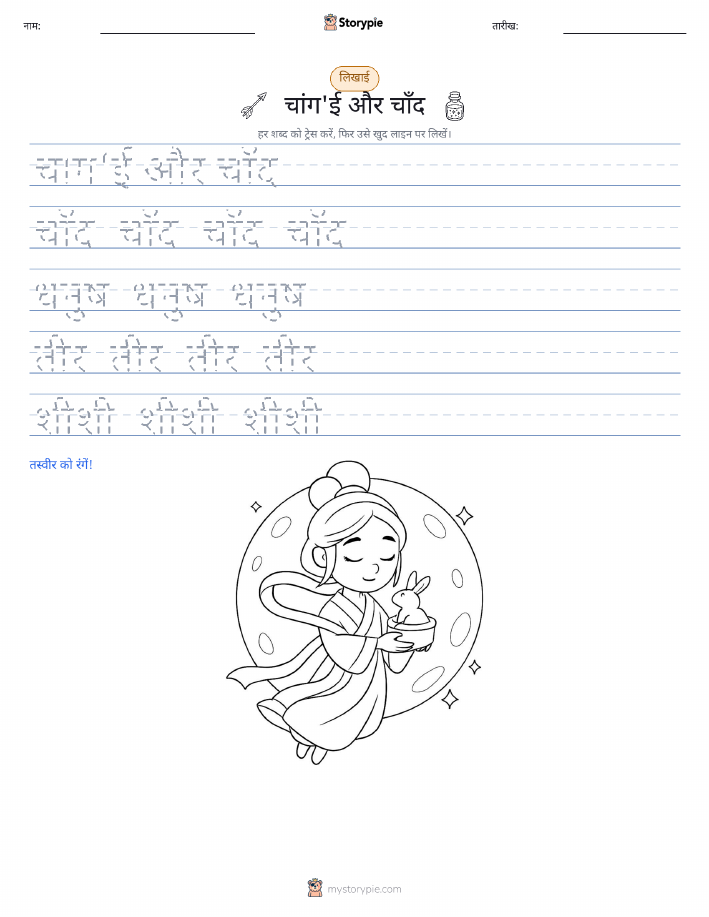 नाम:
Storypie
तारीख:
लिखाई
चांग'ई और चाँद
हर शब्द को ट्रेस करें, फिर उसे खुद लाइन पर लिखें।
चांग'ई और चाँद
चाँद चाँद चाँद चाँद
धनुष धनुष धनुष
तीर तीर तीर तीर
शीशी शीशी शीशी
तस्वीर को रंगें!
mystorypie.com